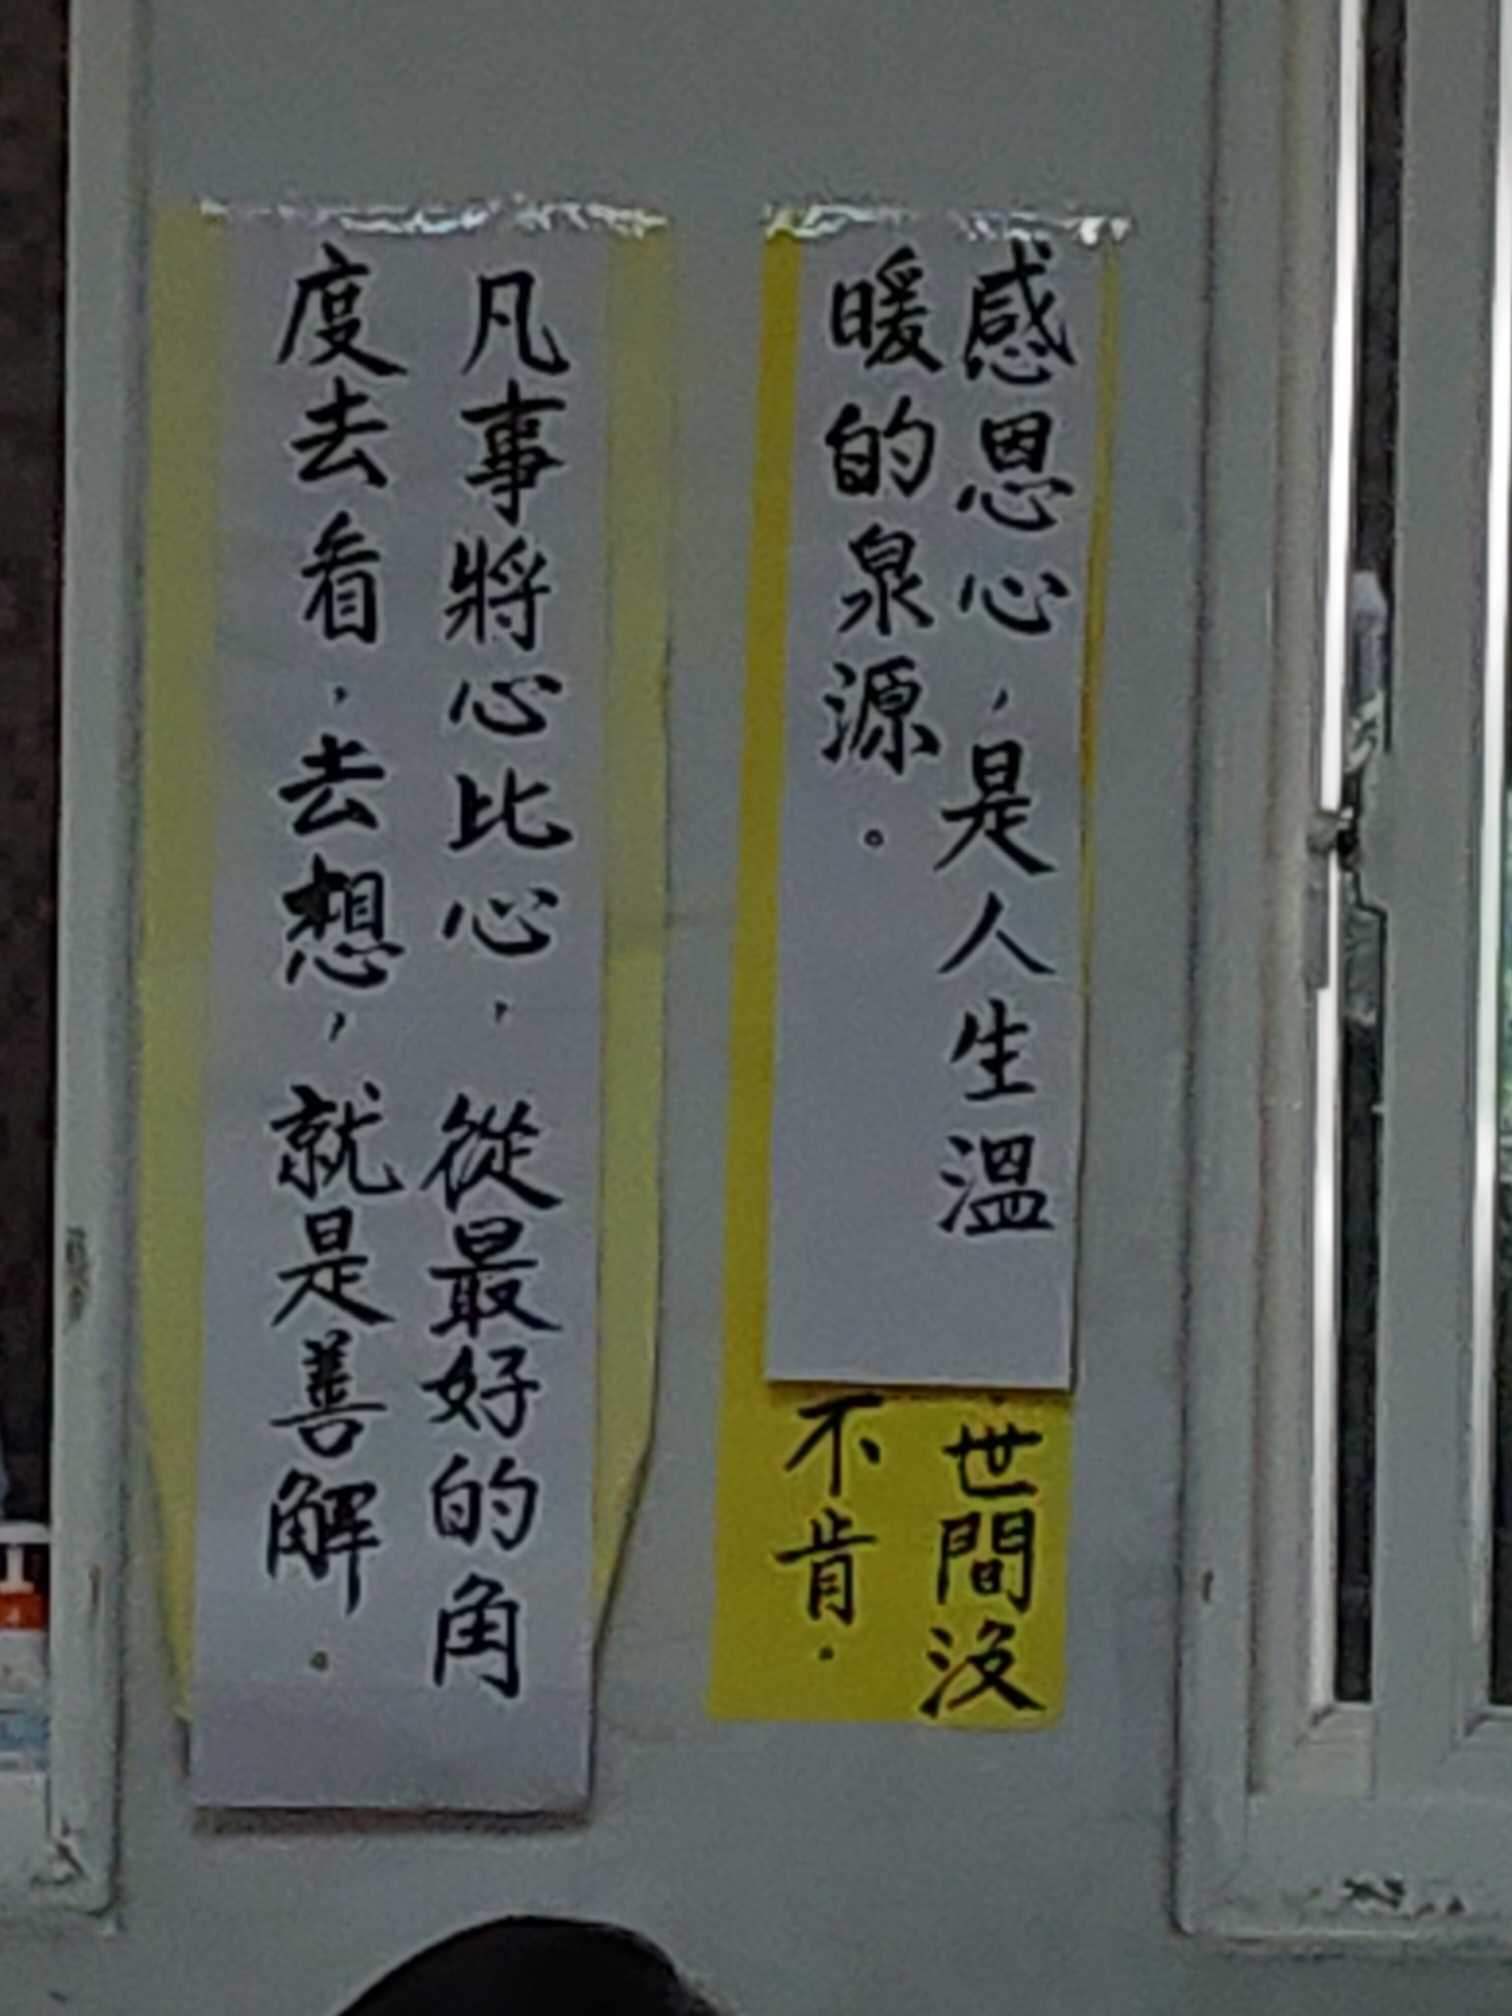 感恩心,是人生溫
暖的泉源。
世間沒
不肯。
凡事將心比心,從最好的角
度去看,去想,就是善解。